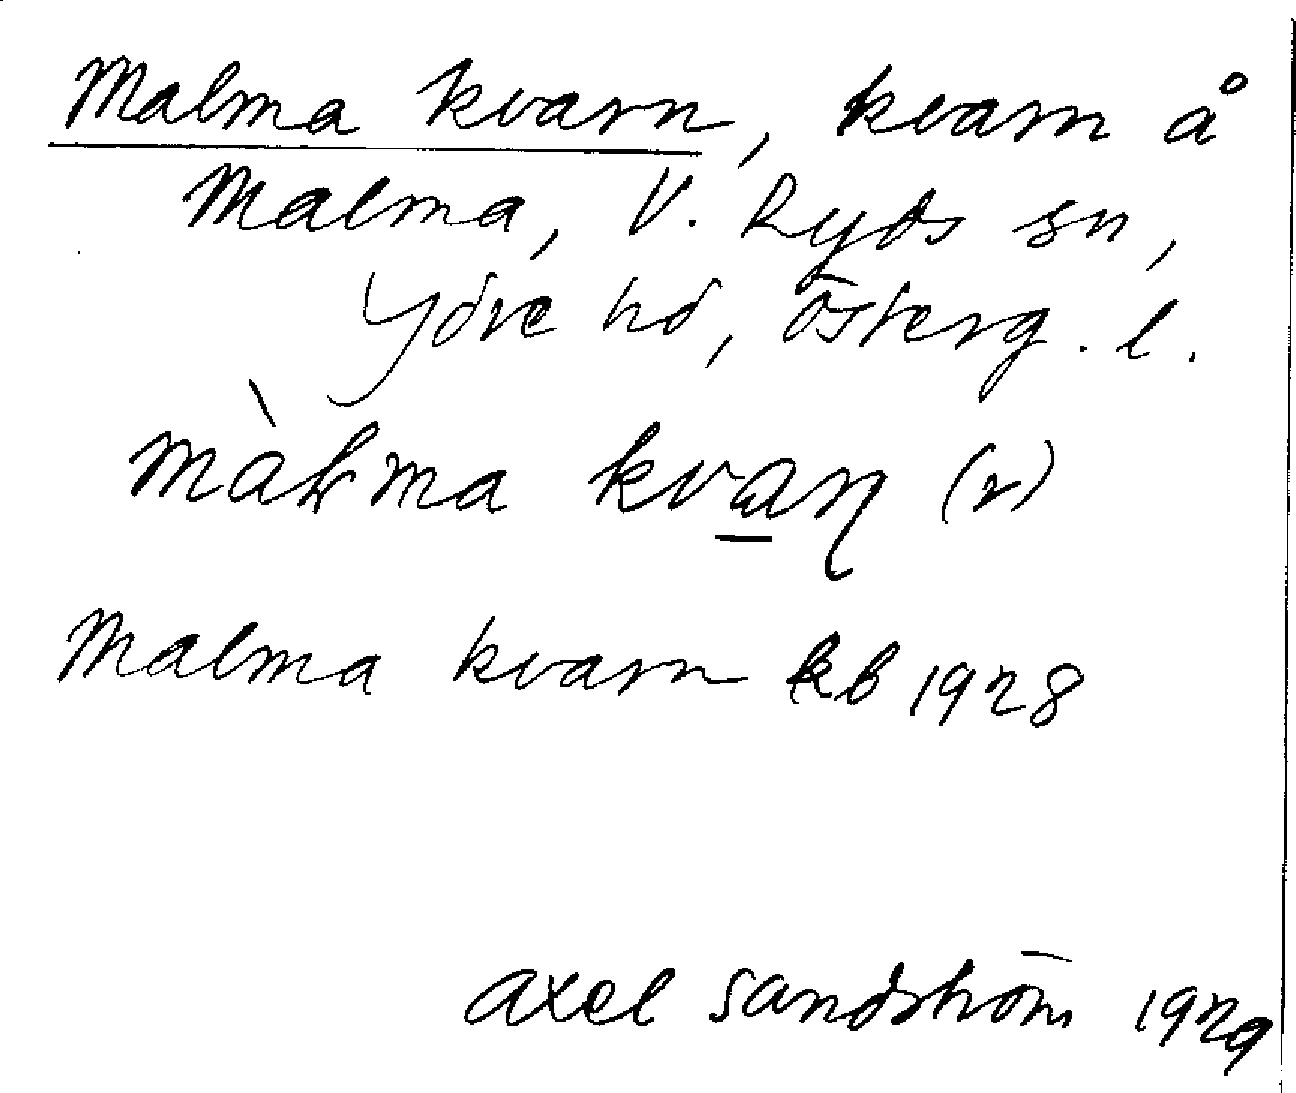 Malma kvarn, kvarn å
Malma, V. Ryds sn,
Ydre hd, Österg. l.
màlma kvaɳ (r)
Malma kvarn kb 1928
Axel Sandström 1929